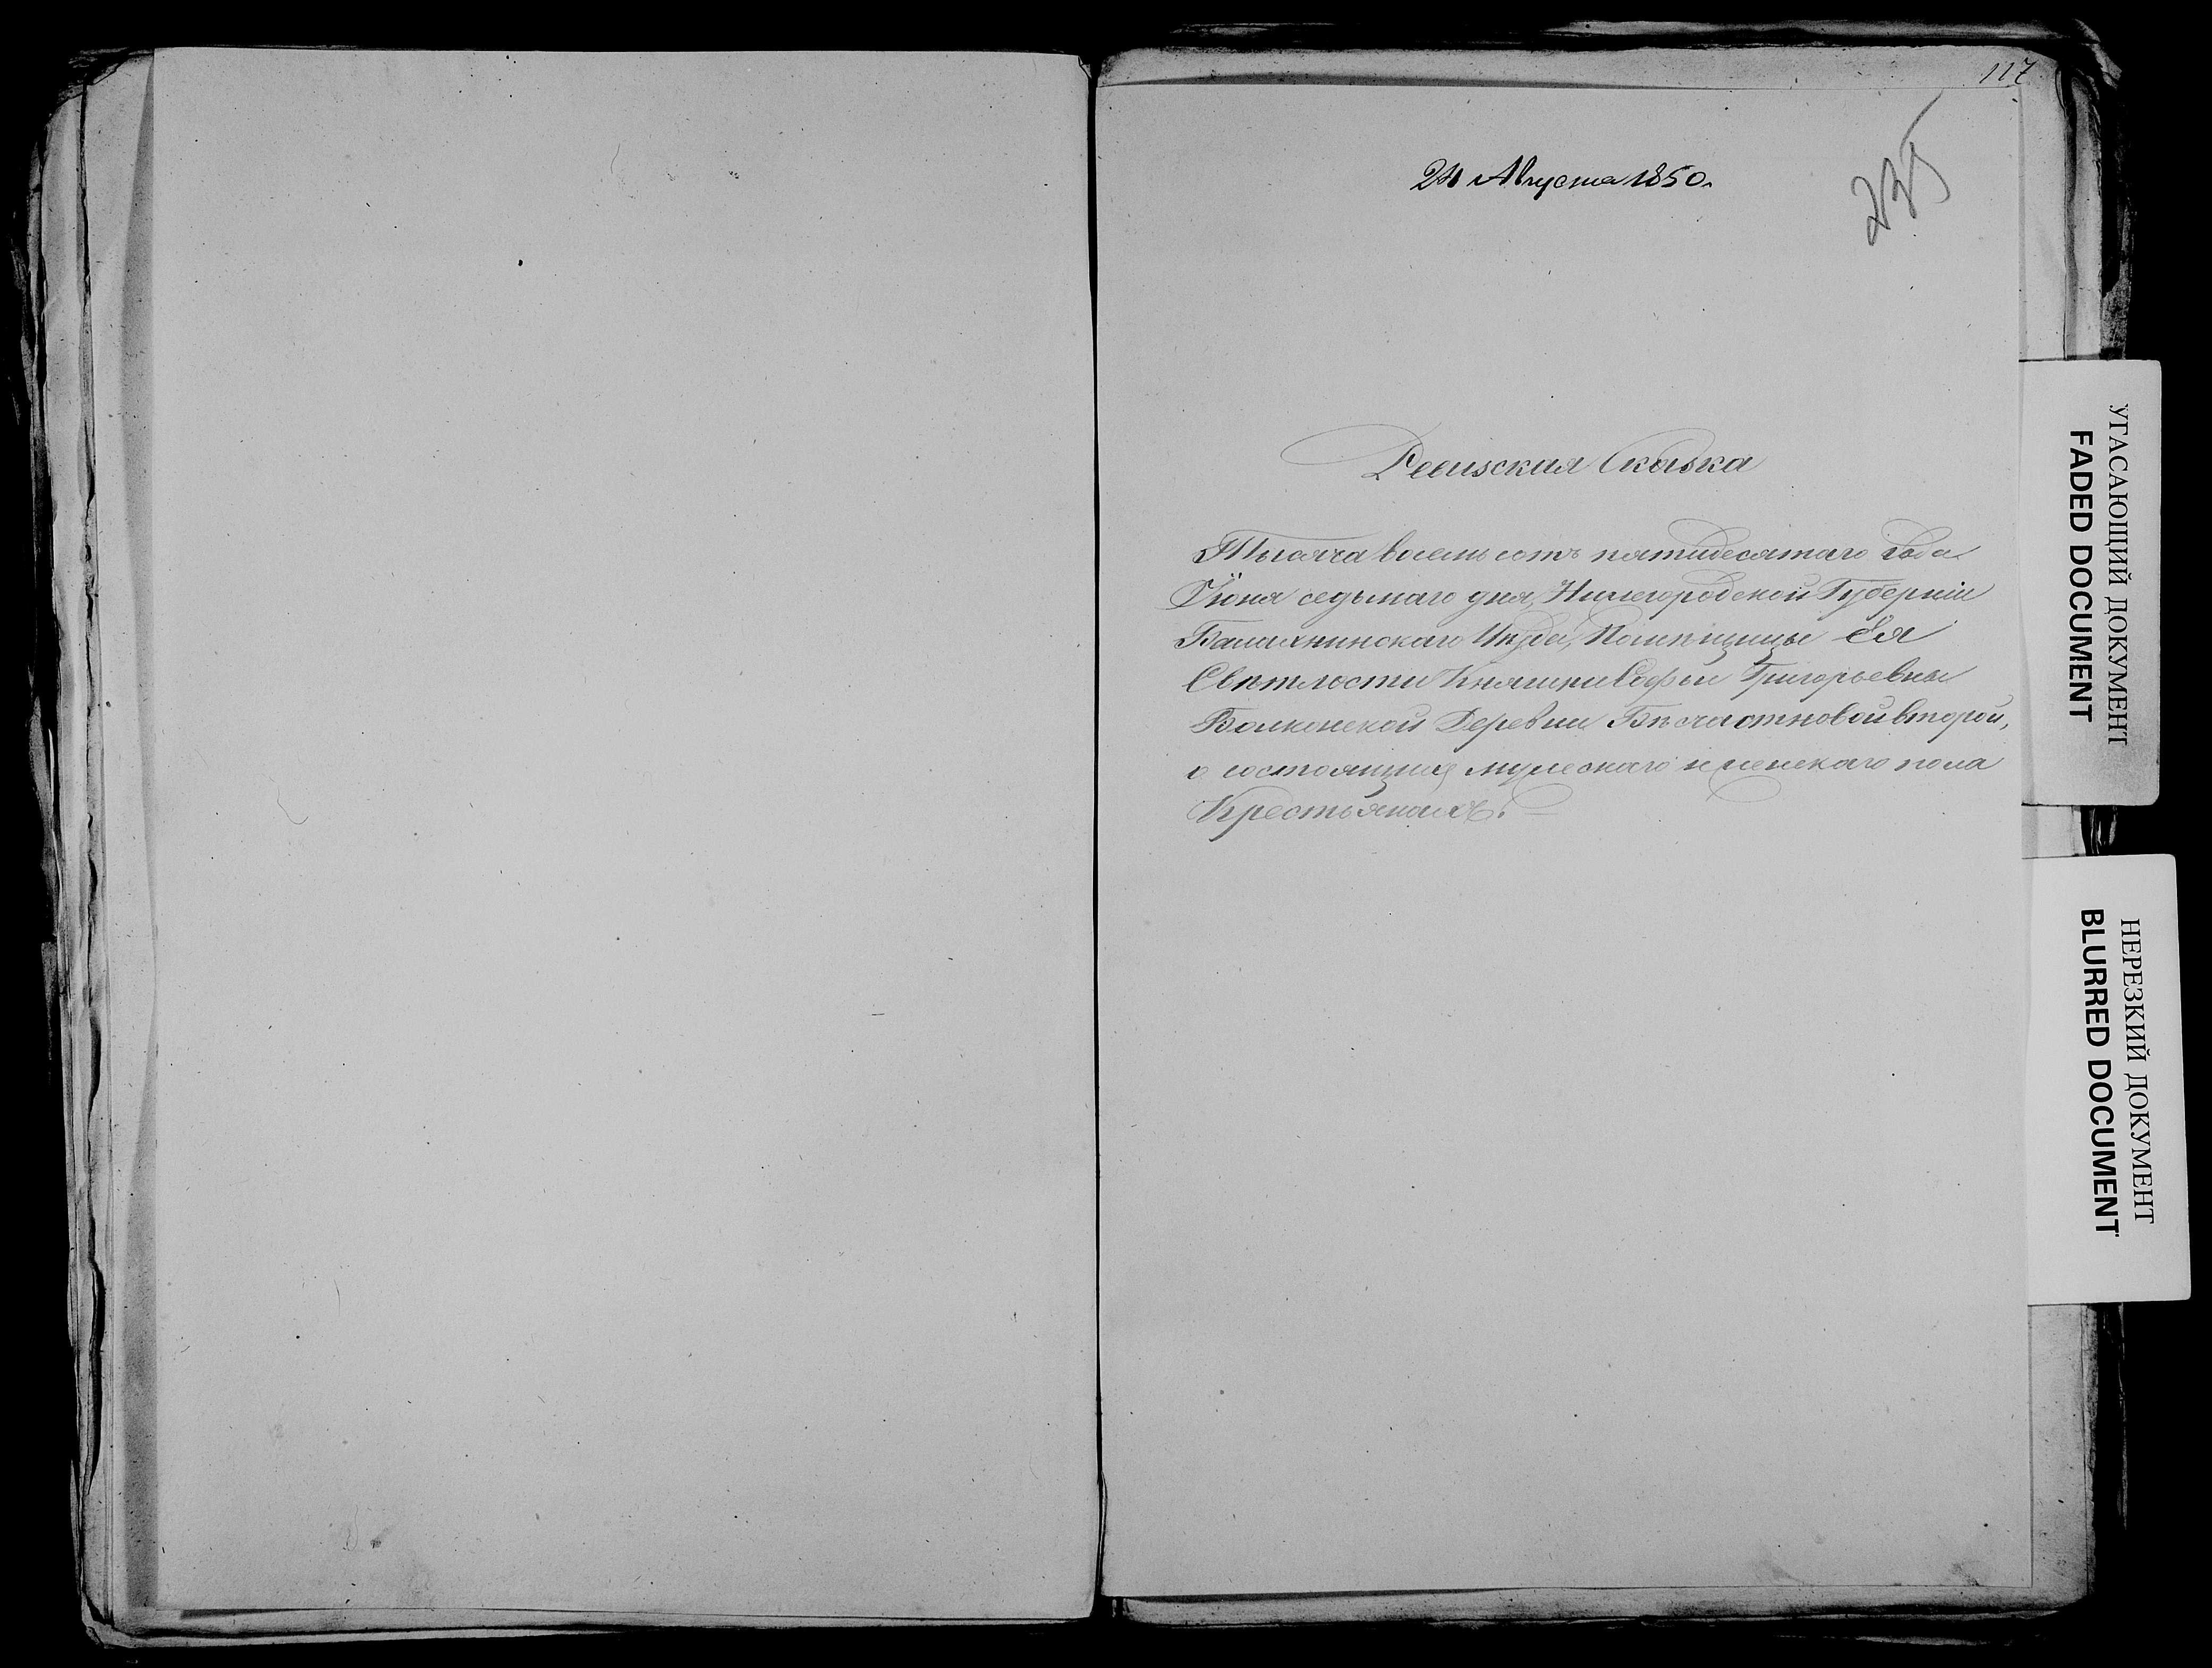 117
235
24 Августа 1850.
Ревизская Сказка
Тысяча восемь сотъ пятидесятаго Года
Іюня седьмаго дня, Нижегородской Губерніи
Балахнинскаго Уѣзда, Помѣщицы Ея
Свѣтлости Княгини Софьи Григорьевны
Волконской Деревни Бѣсчастновой второй,
о состоящихъ мужескаго и женскаго пола
Крестьянахъ.
УГАСАЮЩИЙ ДОКУМЕНТ
FADED DOCUMENT
НЕРЕЗКИЙ ДОКУМЕНТ
BLURRED DOCUMENT